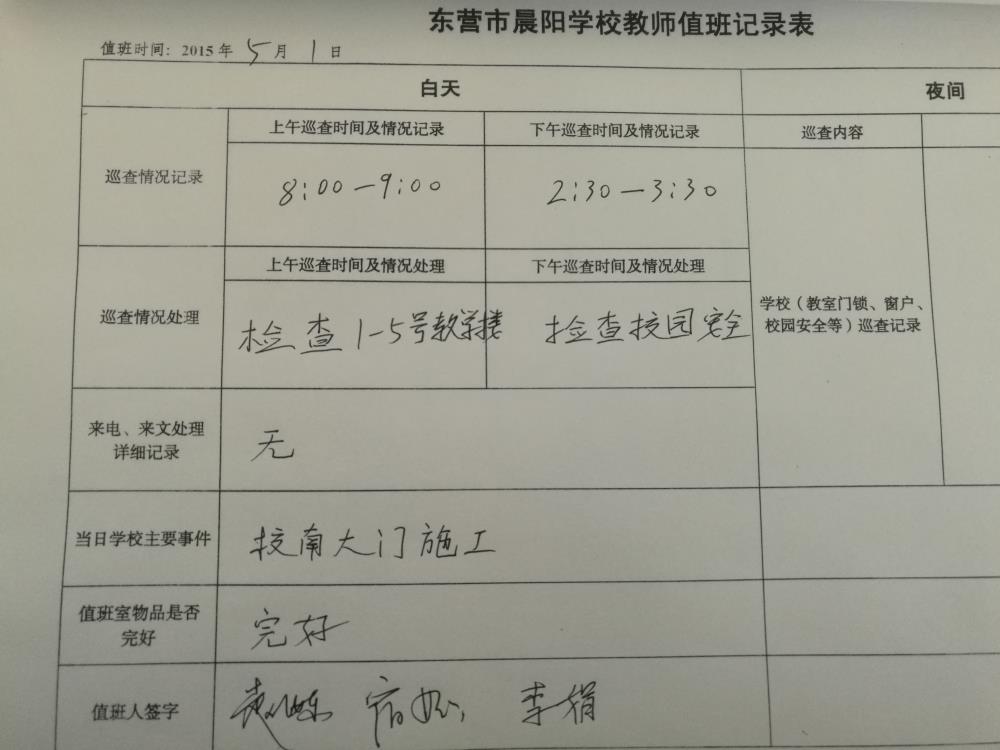 东营市晨阳学校教师值班记录表
值班时间：2015年 5月 1日
白天
夜间
上午巡查时间及情况记录
下午巡查时间及情况记录
巡查内容
巡查情况记录
8:00—9:00
2:30—3:30
上午巡查时间及情况处理
下午巡查时间及情况处理
巡查情况处理
检查1-5号教学楼
检查校园安全
学校（教室门锁、窗户、
校园安全等）巡查记录
来电、来文处理
详细记录
无
当日学校主要事件
校南大门施工
值班室物品是否
完好
完好
值班人签字
李娟